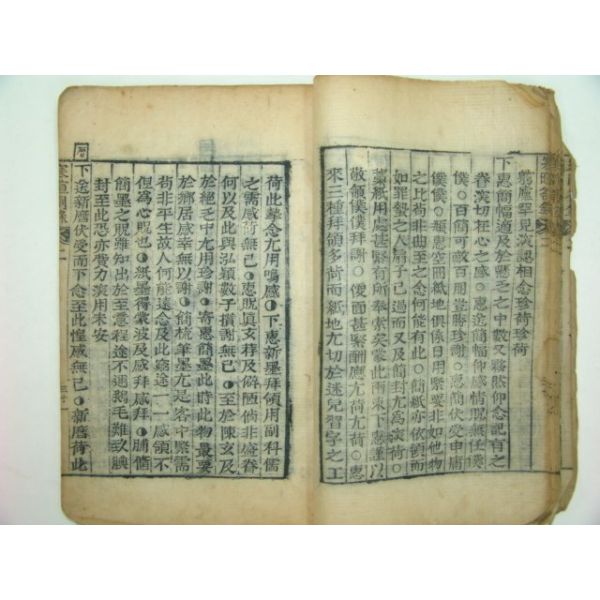 鄙處罕見深認相念珍荷珍荷
下惠簡幅適及於
之中數又夥然仰念記有之
眷深切狂心之感○惠送簡幅仰感情貺無任僕
僕○百簡可敵百朋當勝珍謝○惠簡伏受申庸
僕僕○類惠空冊紙地俱係日用緊要非如他物
之比苟非曲至之念何能有此○簡紙亦依
如罪蟄之人扇子已過而又及簡封尤爲深荷○
紙用處甚緊有所奉索矣蒙此兩東下惠謹以
敬領僕僕拜謝○便面深要酬應尤荷尤荷○惠
來三種拜領多荷而紙地尤切於迷兒習字之工
荷此拳念尤用鳴感○下惠新墨拜領用副科儒
之需感荷無已○惠貺眞玄拜及僻陋倘非盛眷
何以及此與泓穎數子攢謝無已○至於陳玄及
於絕乏中尤用珍謝○寄惠簡墨此時此物最要
於鄉居感幸無以謝○簡梳筆墨尤是客中緊需
苟非平生故人何能遠念及此窮途一一感領不
但爲心貺也○紙墨得蒙波及感拜感拜○腑僃
簡墨之貺雖知出於至意程途不邇鵝毛難致腆
封至此恐亦費力深用未安
曆
下途新曆伏受而下念至此惶感無已○新曆荷此